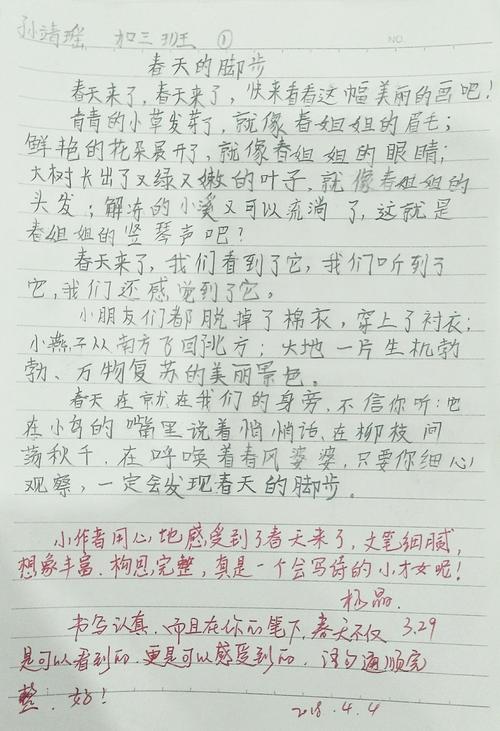 孙靖瑶 加三班 ①
NO.
春天的脚步
春天来了,春天来了,快来看看这幅美丽的画吧!
青青的小草发芽了,就像春姐姐的眉毛;
鲜艳的花朵展开了,就像春姐姐的眼睛;
大树长出了又绿又嫩的叶子,就像春姐姐的
头发;解冻的小溪又可以流淌了,这就是
春姐姐的竖琴声吧?
春天来了,我们看到了它,我们听到了
它,我们还感觉到了它。
小朋友们都脱掉了棉衣,穿上了衬衣;
小燕子从南方飞回北方;大地一片生机勃
勃、万物复苏的美丽景色。
春天在就在我们的身旁,不信你听:它
在小鸟的嘴里说着悄悄话,在柳枝间
荡秋千,在呼唤着春风婆婆,只要你细心
观察,一定会发现春天的脚步。
小作者用心地感受到了春天来了,文笔细腻,
想象丰富,构思完整,真是一个会写诗的小才女呢!
杨晶.
3.29
书写认真,而且在你的笔下,春天不仅
是可以看到的,更是可以感受到的,语句通顺完
整,好!
2018.4.4